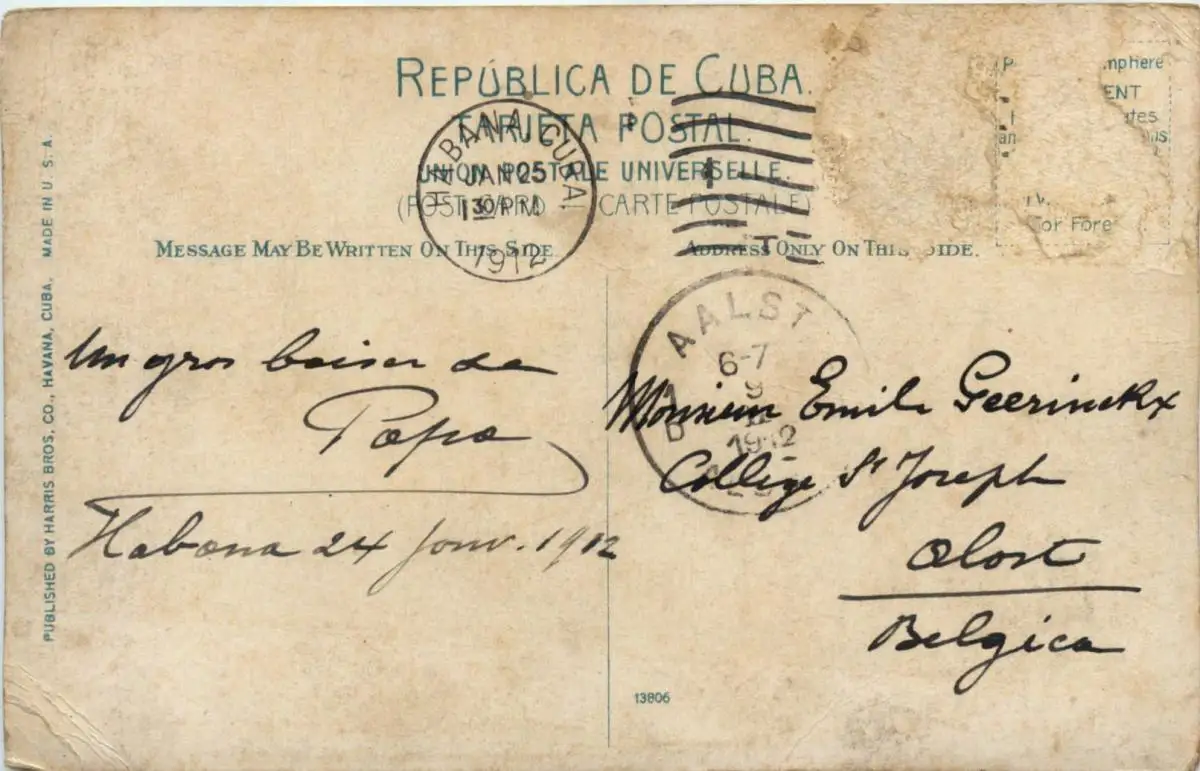 REPÚBLICA DE CUBA.
TARJETA POSTAL.
UNION POSTALE UNIVERSELLE.
(POST CARD CARTE POSTALE)
MESSAGE MAY BE WRITTEN ON THIS SIDE
ADDRESS ONLY ON THIS SIDE.
HABANA, CUBA.
JAN 25
1 30 PM
1912
AALST
6-7
9
1912
Un gros baiser de
Papa
Habana 24 Janv. 1912
Monsieur Emile Geerinckx
College St Joseph
Alost
Belgica
PUBLISHED BY HARRIS BROS. CO., HAVANA, CUBA. MADE IN U. S. A.
13806